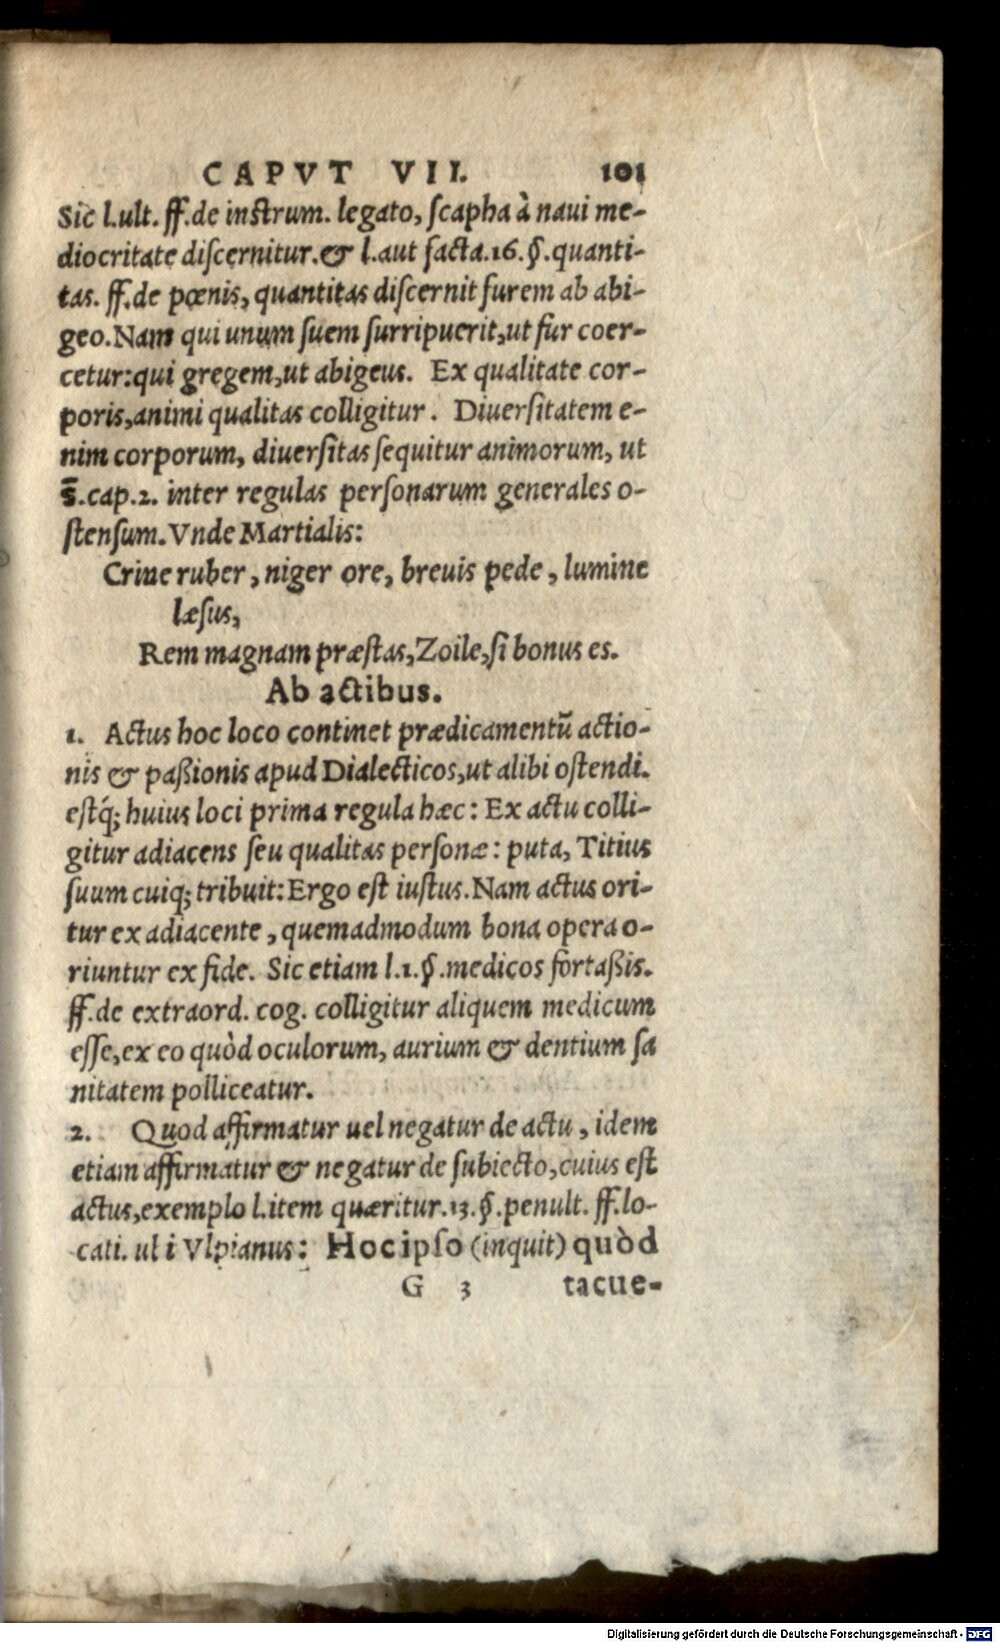 CAPVT VII. 101
Sic l.ult. ff.de instrum. legato, scapha à naui me-
diocritate discernitur.& l.aut facta.16.§.quanti-
tas. ff.de pœnis, quantitas discernit furem ab abi-
geo.Nam qui unum suem surripuerit,ut fur coer-
cetur:qui gregem,ut abigeus. Ex qualitate cor-
poris,animi qualitas colligitur. Diuersitatem e-
nim corporum, diuersitas sequitur animorum, ut
s̄.cap.2. inter regulas personarum generales o-
stensum.Vnde Martialis:
Crine ruber, niger ore, breuis pede, lumine
læsus,
Rem magnam præstas,Zoile,si bonus es.
Ab actibus.
1. Actus hoc loco continet prædicamentū actio-
nis & paßionis apud Dialecticos,ut alibi ostendi.
estq́; huius loci prima regula hæc: Ex actu colli-
gitur adiacens seu qualitas personæ: puta, Titius
suum cuiq; tribuit: Ergo est iustus.Nam actus ori-
tur ex adiacente, quemadmodum bona opera o-
riuntur ex fide. Sic etiam l.1.§.medicos fortaßis.
ff.de extraord. cog. colligitur aliquem medicum
esse,ex eo quòd oculorum, aurium & dentium sa
nitatem polliceatur.
2. Quod affirmatur uel negatur de actu, idem
etiam affirmatur & negatur de subiecto,cuius est
actus,exemplo l.item quæritur.13.§.penult. ff.lo-
cati. ubi Vlpianus: Hoc ipso (inquit) quòd
G 3 tacue-
Digitalisierung gefördert durch die Deutsche Forschungsgemeinschaft - DFG